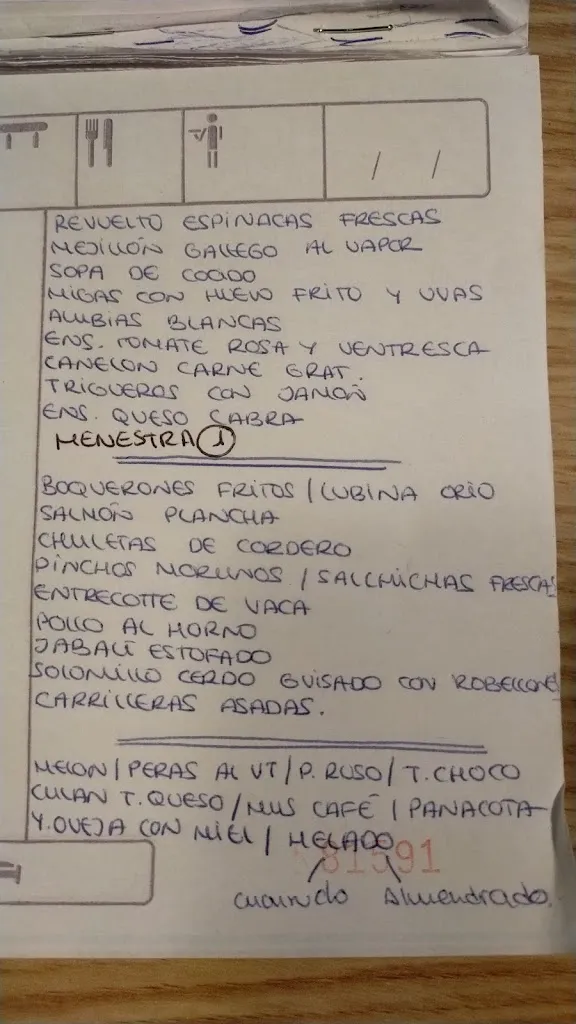 / /
REVUELTO ESPINACAS FRESCAS
MEJILLÓN GALLEGO AL VAPOR
SOPA DE COCIDO
MIGAS CON HUEVO FRITO Y UVAS
ALUBIAS BLANCAS
ENS. TOMATE ROSA Y VENTRESCA
CANELON CARNE GRAT.
TRIGUEROS CON JAMÓN
ENS. QUESO SABRA
MENESTRA 1
BOQUERONES FRITOS / LUBINA ORIO
SALMÓN PLANCHA
CHULETAS DE CORDERO
PINCHOS MORUNOS / SALCHICHAS FRESCAS
ENTRECOTTE DE VACA
POLLO AL HORNO
JABALÍ ESTOFADO
SOLOMILLO CERDO GUISADO CON ROBELLONES
CARRILLERAS ASADAS.
MELON / PERAS AL VT / P. RUSO / T. CHOCO
CULAN T. QUESO / MUS CAFÉ / PANACOTA
Y. OVEJA CON MIEL / HELADO
81591
Almendrado.